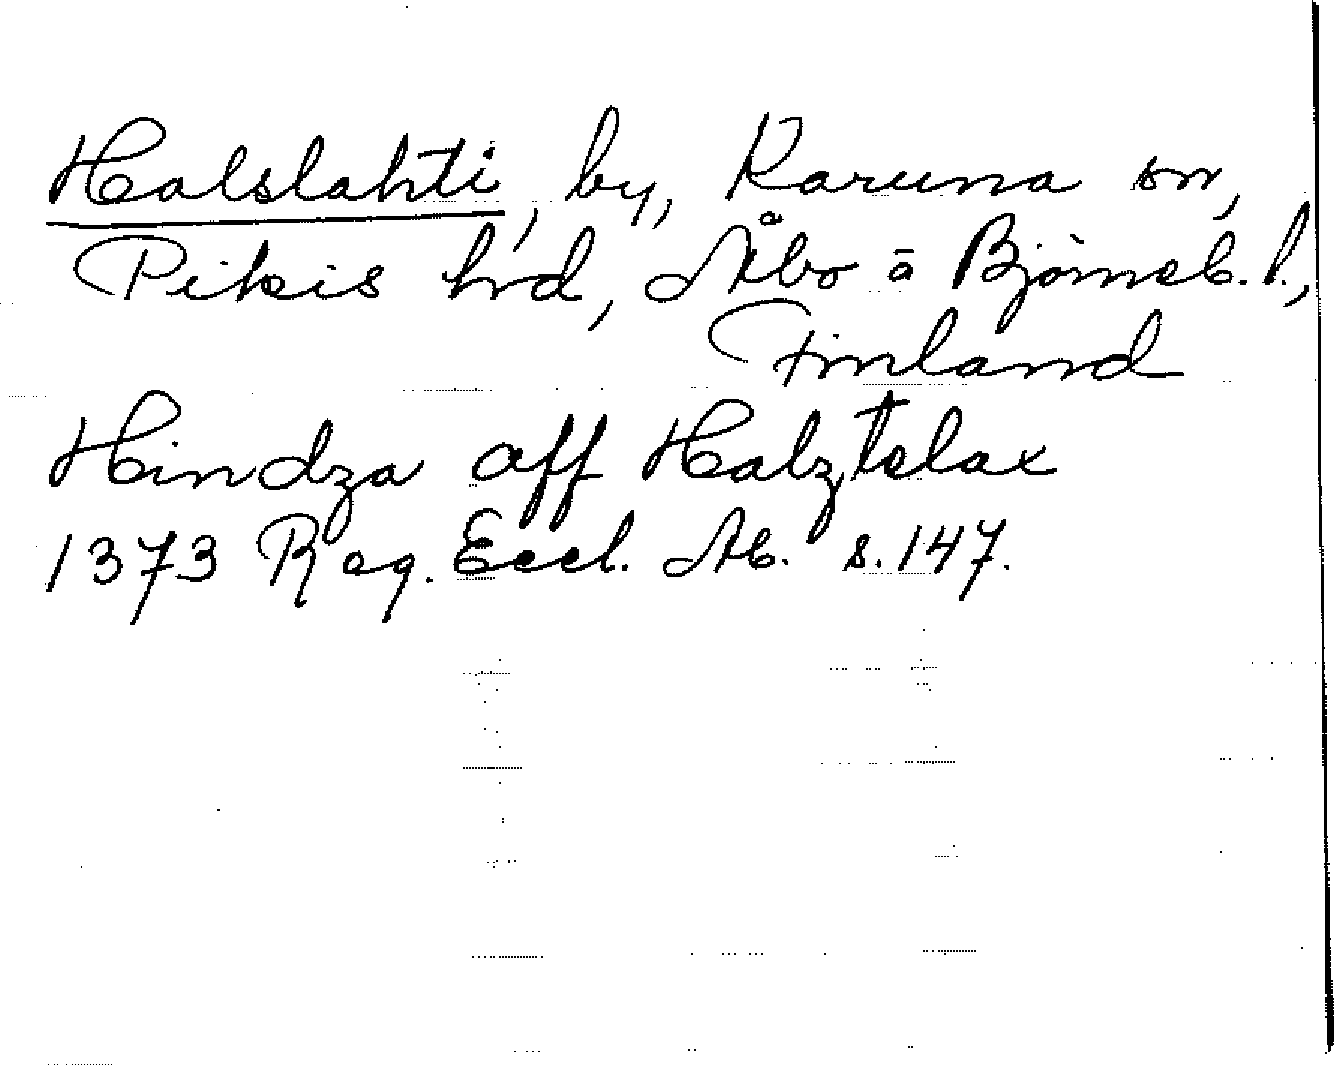 Halslahti, by, Karuna sn,
Pikis hrd, Åbo o Björneb. l.,
Finland
Hindza aff Halztslax
1373 Reg. Eccl. Ab. s. 147.